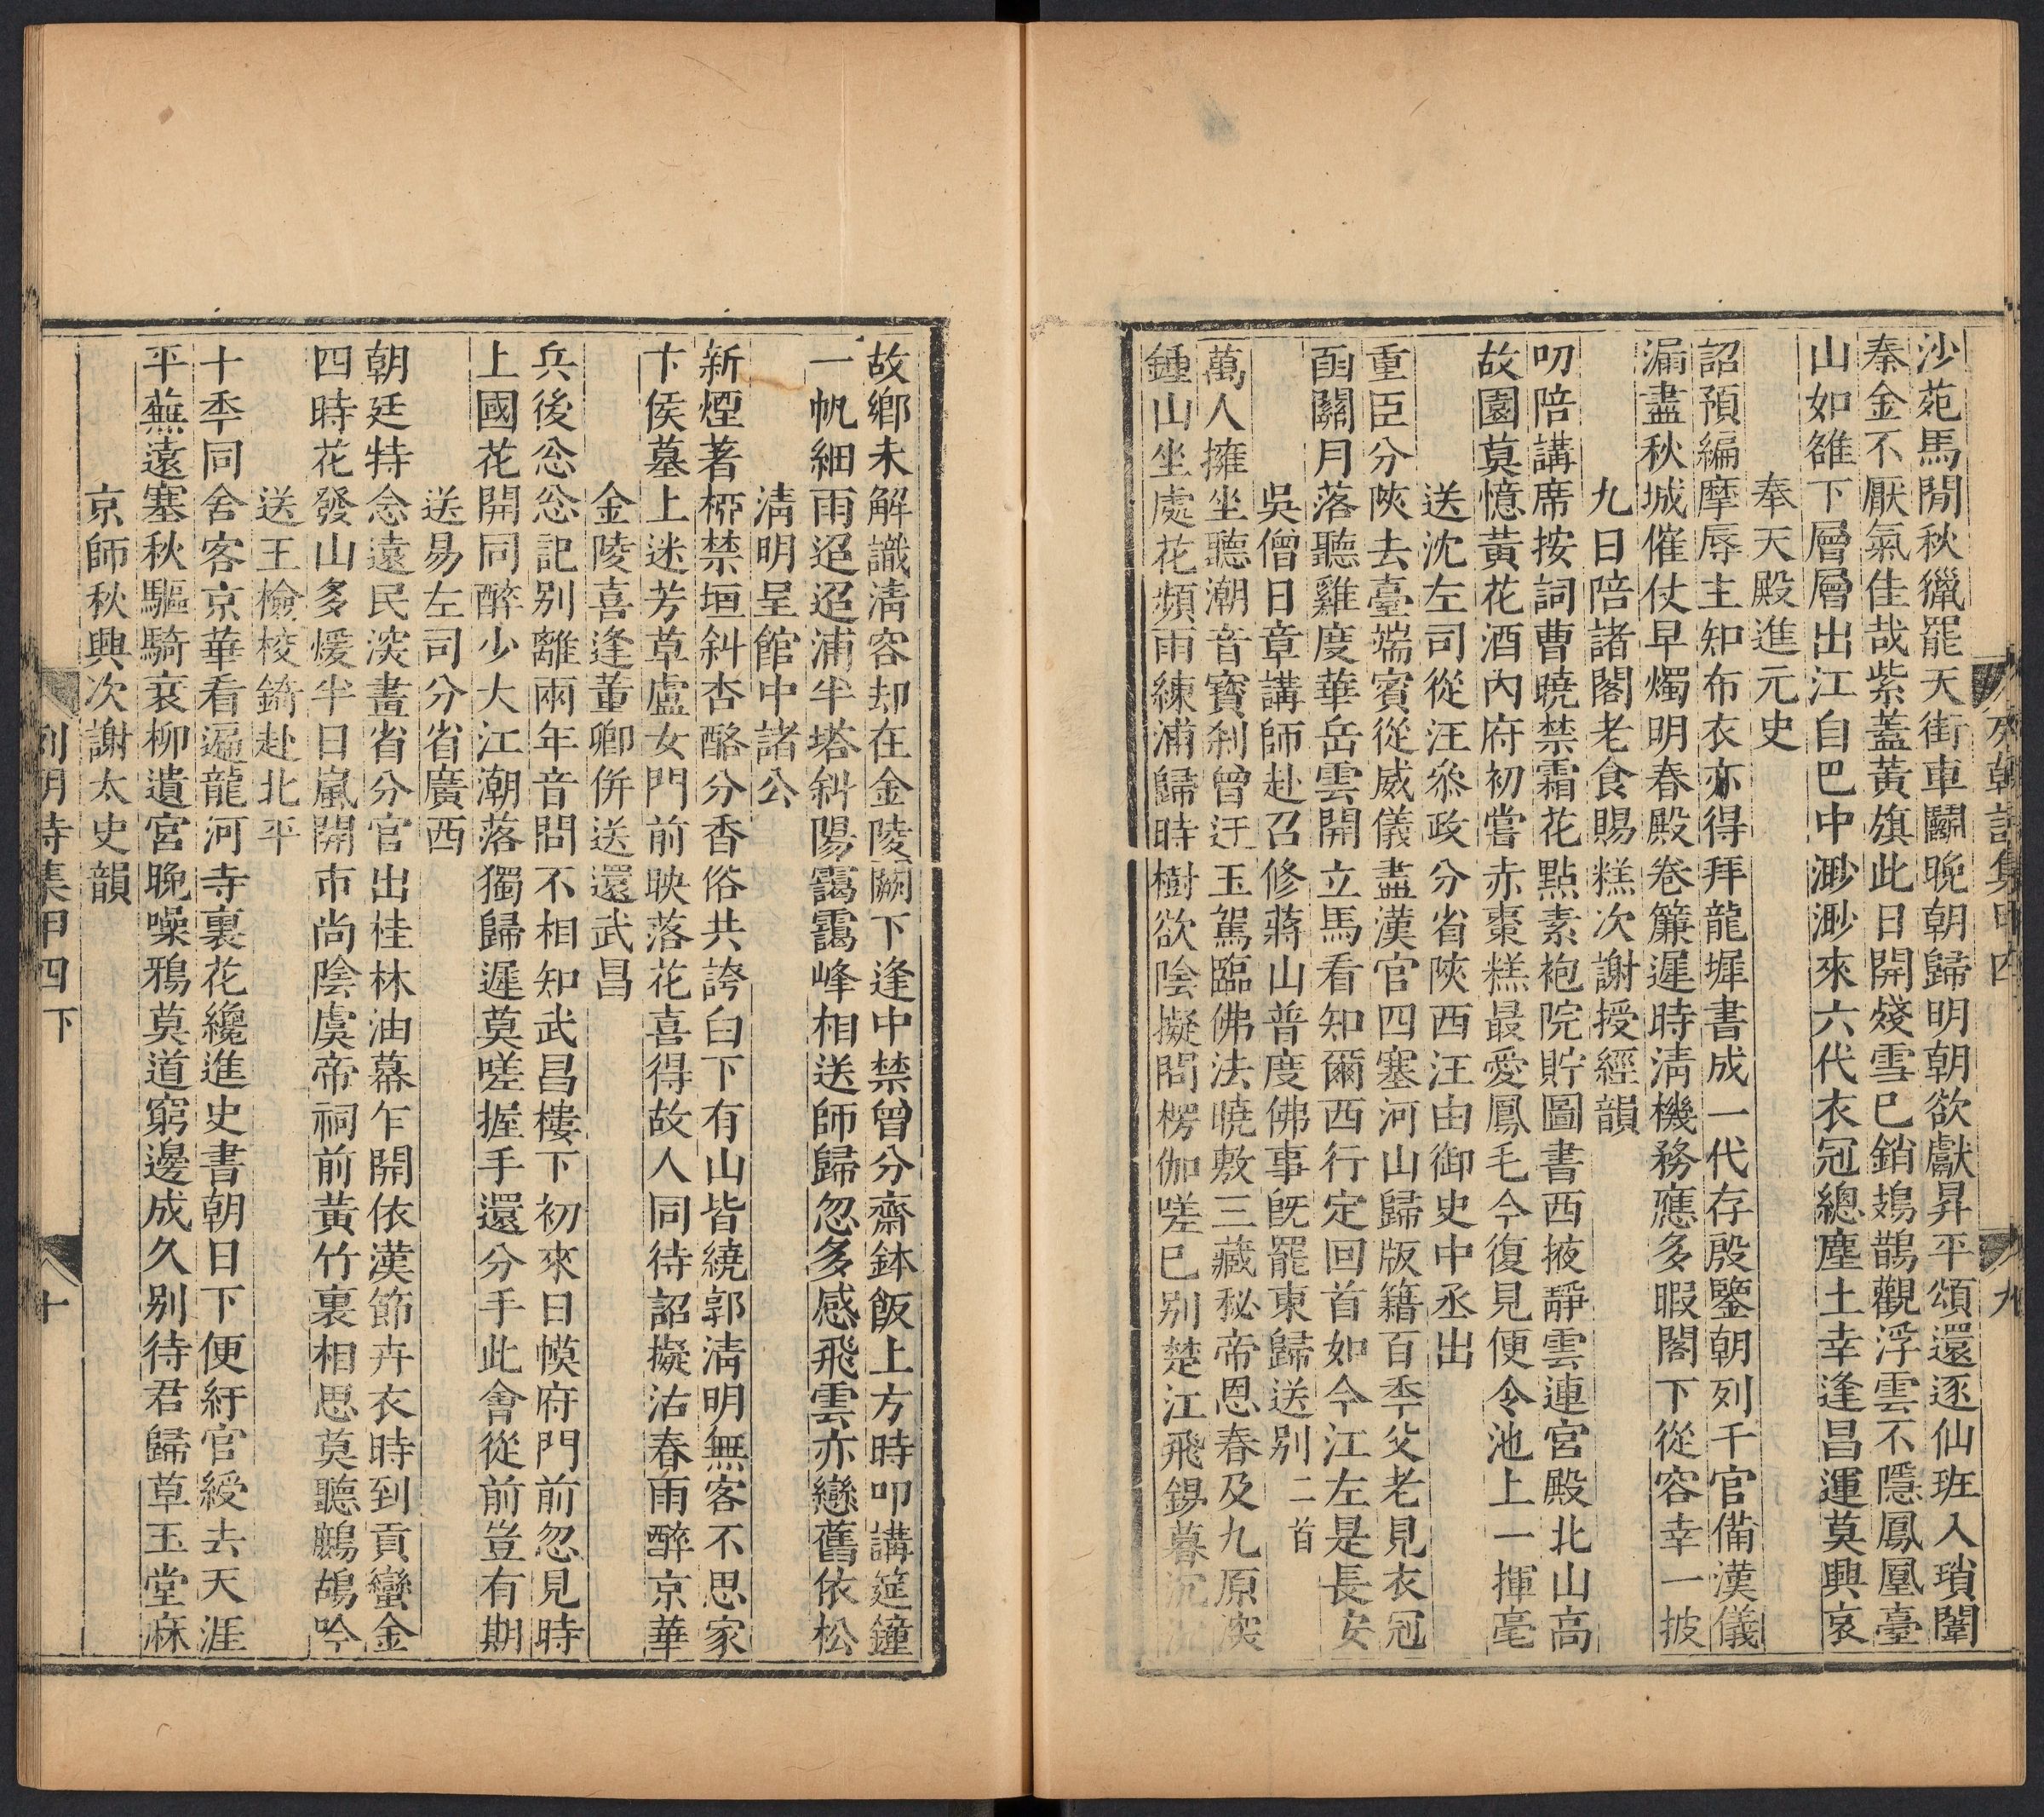 沙苑馬閒秋獵罷天街車鬭晚朝歸明朝欲獻昇平頌還逐仙班入瑣闈
秦金不厭氣佳哉紫蓋黃旗此日開殘雪已銷鳷鵲觀浮雲不隱鳳凰臺
山如雒下層層出江自巴中渺渺來六代衣冠總塵土幸逢昌運莫興哀
奉天殿進元史
詔預編摩辱主知布衣亦得拜龍墀書成一代存殷鑒朝列千官備漢儀
漏盡秋城催仗早燭明春殿卷簾遲時淸機務應多暇閣下從容幸一披
九日陪諸閣老食賜糕次謝授經韻
叨陪講席按詞曹曉禁霜花點素袍院貯圖書西掖靜雲連宮殿北山高
故園莫憶黃花酒內府初嘗赤棗糕最愛鳳毛今復見便令池上一揮毫
送沈左司從汪叅政分省陝西汪由御史中丞出
重臣分陝去臺端賓從威儀盡漢官四塞河山歸版籍百秊父老見衣冠
函關月落聽雞度華岳雲開立馬看知爾西行定回首如今江左是長安
吳僧日章講師赴召修蔣山普度佛事旣罷東歸送别二首
萬人擁坐聽潮音寶刹曾迂玉駕臨佛法曉敷三藏秘帝恩春及九原㴱
鍾山坐處花頻雨練浦歸時樹欲陰擬問楞伽嗟已别楚江飛錫暮沉沉
列朝詩集甲四
九
故鄉未解識淸容却在金陵闕下逢中禁曾分齋鉢飯上方時叩講筵鐘
一帆細雨迢迢浦半塔斜陽靄靄峰相送師歸忽多感飛雲亦戀舊依松
淸明呈館中諸公
新煙著桺禁垣斜杏酪分香俗共誇白下有山皆繞郭淸明無客不思家
卞侯墓上迷芳草盧女門前映落花喜得故人同待詔擬沽春雨醉京華
金陵喜逢董卿併送還武昌
兵後忩忩記别離兩年音問不相知武昌樓下初來日幙府門前忽見時
上國花開同醉少大江潮落獨歸遲莫嗟握手還分手此會從前豈有期
送易左司分省廣西
朝廷特念遠民㴱畫省分官出桂林油幕乍開依漢節卉衣時到貢蠻金
四時花發山多煖半日嵐開市尚陰虞帝祠前黃竹裏相思莫聽鷓鴣吟
送王檢校錡赴北平
十秊同舍客京華看遍龍河寺裏花纔進史書朝日下便紆官綬去天涯
平蕪遠塞秋驅騎衰柳遺宮晚噪鴉莫道窮邊成久别待君歸草玉堂麻
京師秋興次謝太史韻
列朝詩集甲四下
十